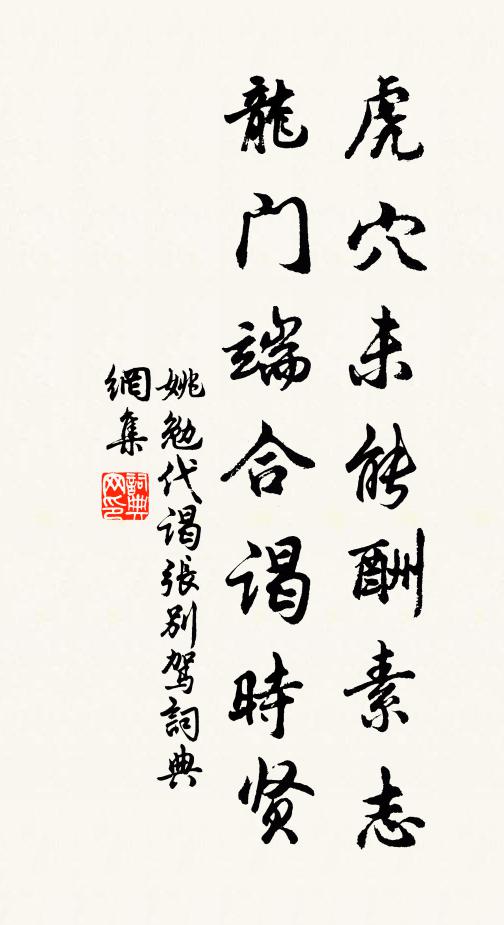 虎穴未能酬素志
龍门端合谒時贤
姚勉代谒張别驾詞典
網集
詞典
网印